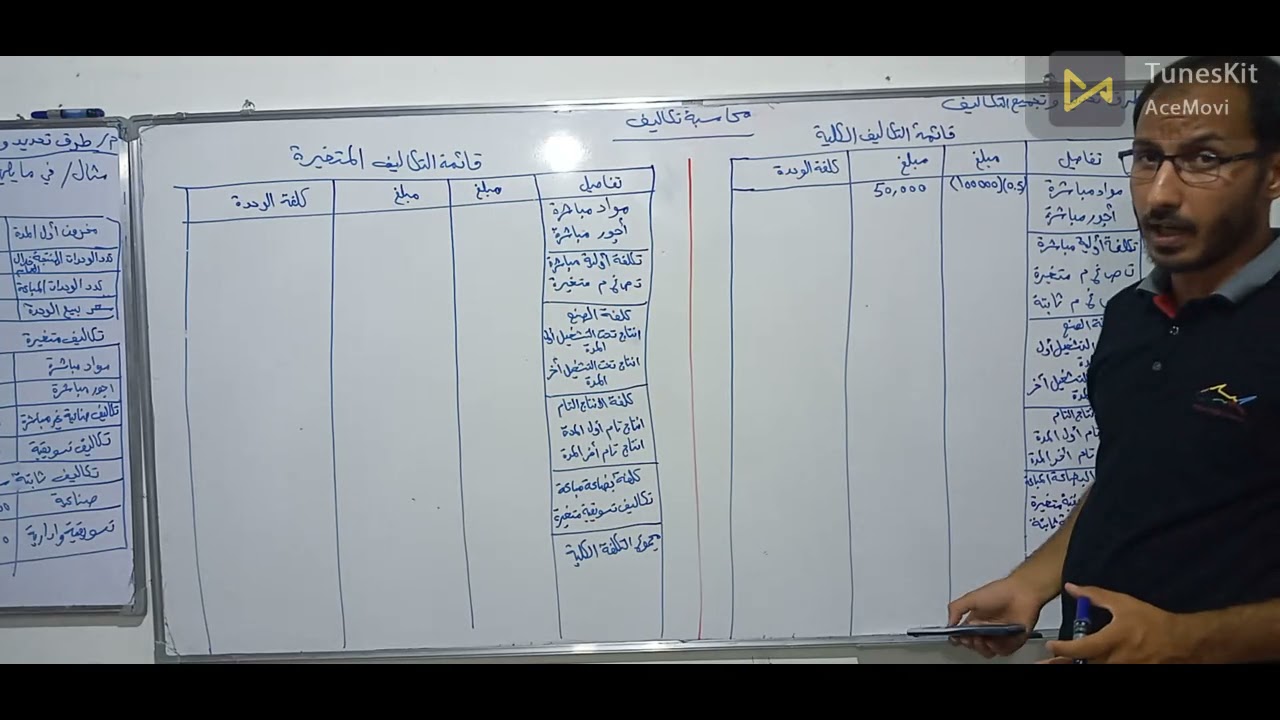 TunesKit
AceMovi
محاسبة تكاليف
وتجميع التكاليف
قائمة التكاليف الكلية
تفاصيل مبلغ مبلغ كلفة الوحدة
مواد مباشرة (100000)(0.5) 50,000
أجور مباشرة
تكلفة أولية مباشرة
ت ص غ م متغيرة
ص غ م ثابتة
الصنع
التشغيل أول
التشغيل آخر
التام
تام أول المدة
تام آخر المدة
البضاعة المباعة
متغيرة
ثابتة
قائمة التكاليف المتغيرة
تفاصيل مبلغ مبلغ كلفة الوحدة
مواد مباشرة
أجور مباشرة
تكلفة أولية مباشرة
ت ص غ م متغيرة
كلفة الصنع
انتاج تحت التشغيل أول
المدة
انتاج تحت التشغيل آخر
المدة
كلفة الانتاج التام
انتاج تام أول المدة
انتاج تام آخر المدة
كلفة بضاعة مباعة
تكاليف تسويقية متغيرة
مجموع التكلفة الكلية
م/ طرق تحديد و
مثال/ في ما يلي
مخزون أول المدة
عدد الوحدات المنتجة خلال
عدد الوحدات المباعة
سعر بيع الوحدة
تكاليف متغيرة
مواد مباشرة
اجور مباشرة
تكاليف صناعية غير مباشرة
تكاليف تسويقية
تكاليف ثابتة
صناعية
تسويقية وادارية